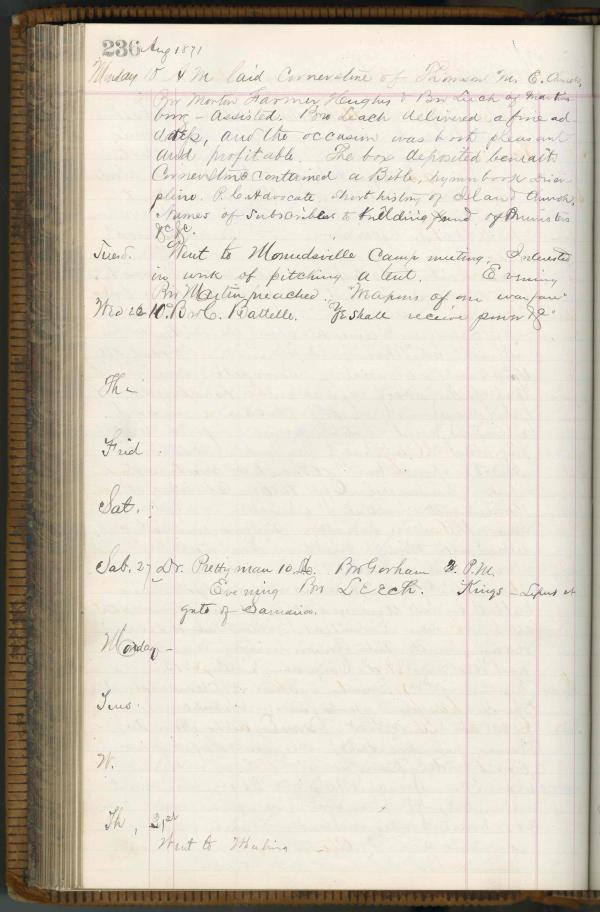 236 Aug 1871
Monday 10 A M laid Cornerstone of Thomson M. E. Church,
Bro Morton Farmer Hughes & Bro Leach of Martins
burg - assisted. Bro Leach delivered a fine ad
dress, and the occasion was both pleasant
and profitable. The box deposited beneath
Cornerstone contained a Bible, hymnbook Disci
pline. P. C. Advocate, short history of Island Church,
Names of Subscribers to building fund of Ministers
&c &c.
Tuesd. Went to Moundsville Camp meeting. Interested
in work of pitching a tent. Evening
Bro Martin preached. "Weapons of our warfare"
Wed 10. Bro C. Battelle. "Ye shall receive power &c"
Th -
Frid
Sat.
Sab. 27 Dr. Prettyman 10. Bro Gorham P.M.
Evening Bro Leech. Kings - Lepers at
gate of Samaria.
Monday -
Tues
W.
Th, 31st
Went to